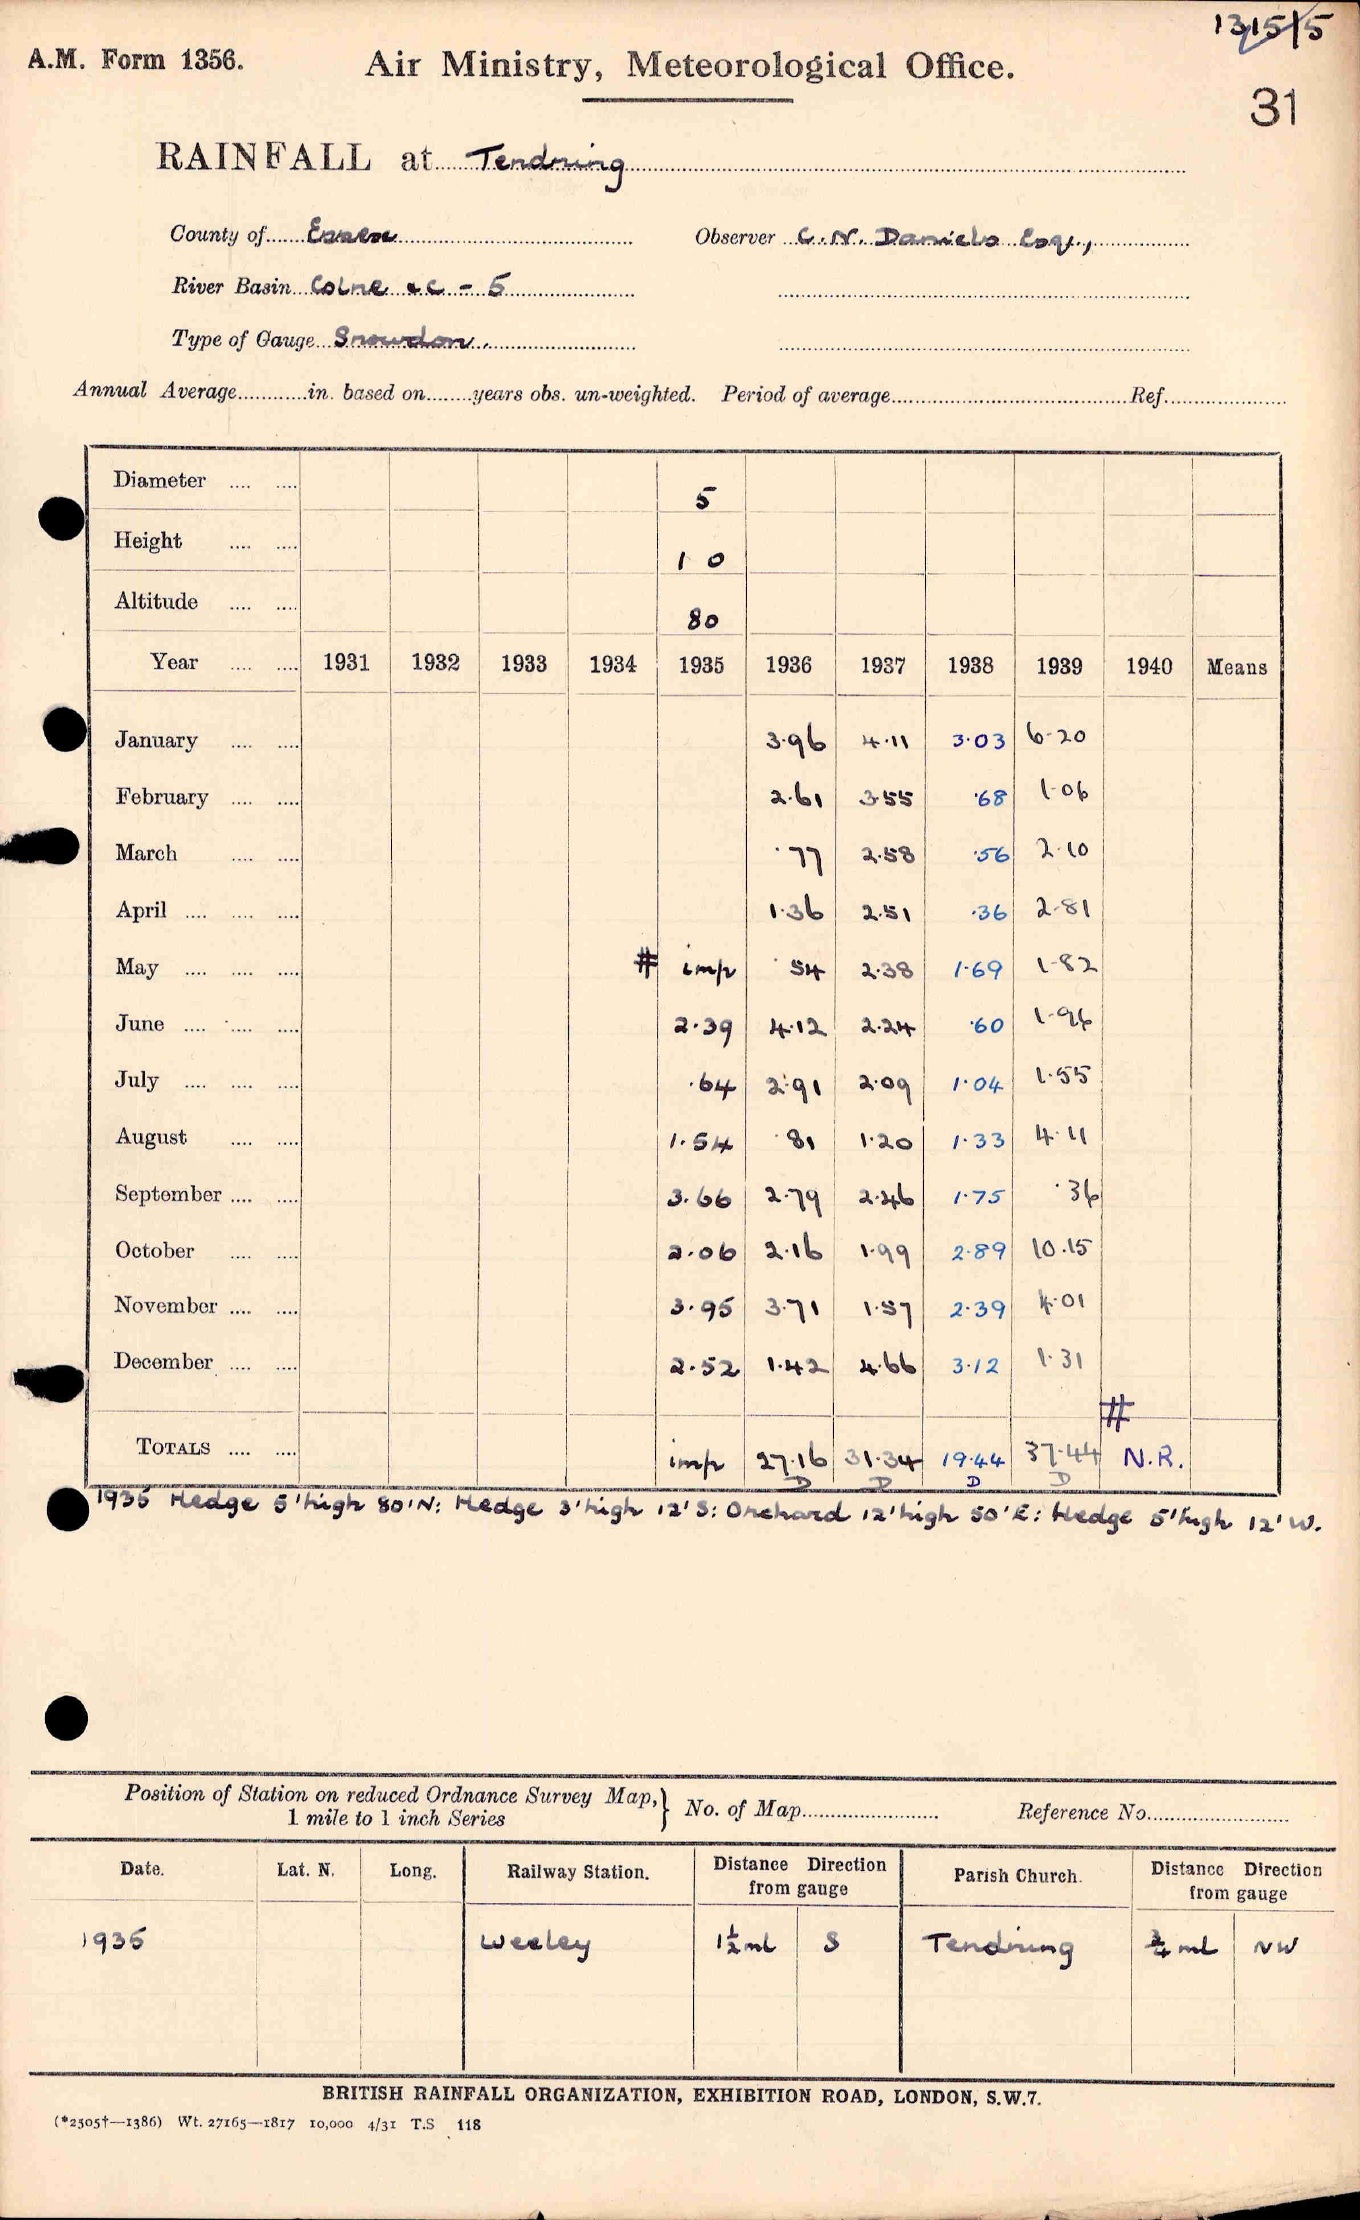 1315/5
A.M. Form 1356. Air Ministry, Meteorological Office.
31
RAINFALL at Tendring
County of Essex Observer C.N. Daniels Esq.,
River Basin Colne &c - 5
Type of Gauge Snowdon.
Annual Average............in. based on........years obs. un-weighted. Period of average............Ref............
Diameter .... .... 5
Height .... .... 1 0
Altitude .... .... 80
Year .... .... 1931 1932 1933 1934 1935 1936 1937 1938 1939 1940 Means
January .... .... 3.96 4.11 3.03 6.20
February .... .... 2.61 3.55 .68 1.06
March .... .... .77 2.58 .56 2.10
April .... .... .... 1.36 2.51 .36 2.81
May .... .... .... # imp .54 2.38 1.69 1.82
June .... .... .... 2.39 4.12 2.24 .60 1.96
July .... .... .... .64 2.91 2.09 1.04 1.55
August .... .... 1.54 .81 1.20 1.33 4.11
September .... .... 3.66 2.79 2.46 1.75 .36
October .... .... 2.06 2.16 1.99 2.89 10.15
November .... .... 3.95 3.71 1.57 2.39 4.01
December .... .... 2.52 1.42 4.66 3.12 1.31
#
TOTALS .... .... imp 27.16 31.34 19.44 37.44 N.R.
D D D D
1935 Hedge 5' high 80' N: Hedge 3' high 12' S: Orchard 12' high 50' E: Hedge 5' high 12' W.
Position of Station on reduced Ordnance Survey Map, } No. of Map............ Reference No............
1 mile to 1 inch Series
Date. Lat. N. Long. Railway Station. Distance Direction from gauge Parish Church. Distance Direction from gauge
1935 Weeley 1½ ml S Tendring ¾ ml NW
BRITISH RAINFALL ORGANIZATION, EXHIBITION ROAD, LONDON, S.W.7.
(*2505†—1386) Wt. 27165—1817 10,000 4/31 T.S 118